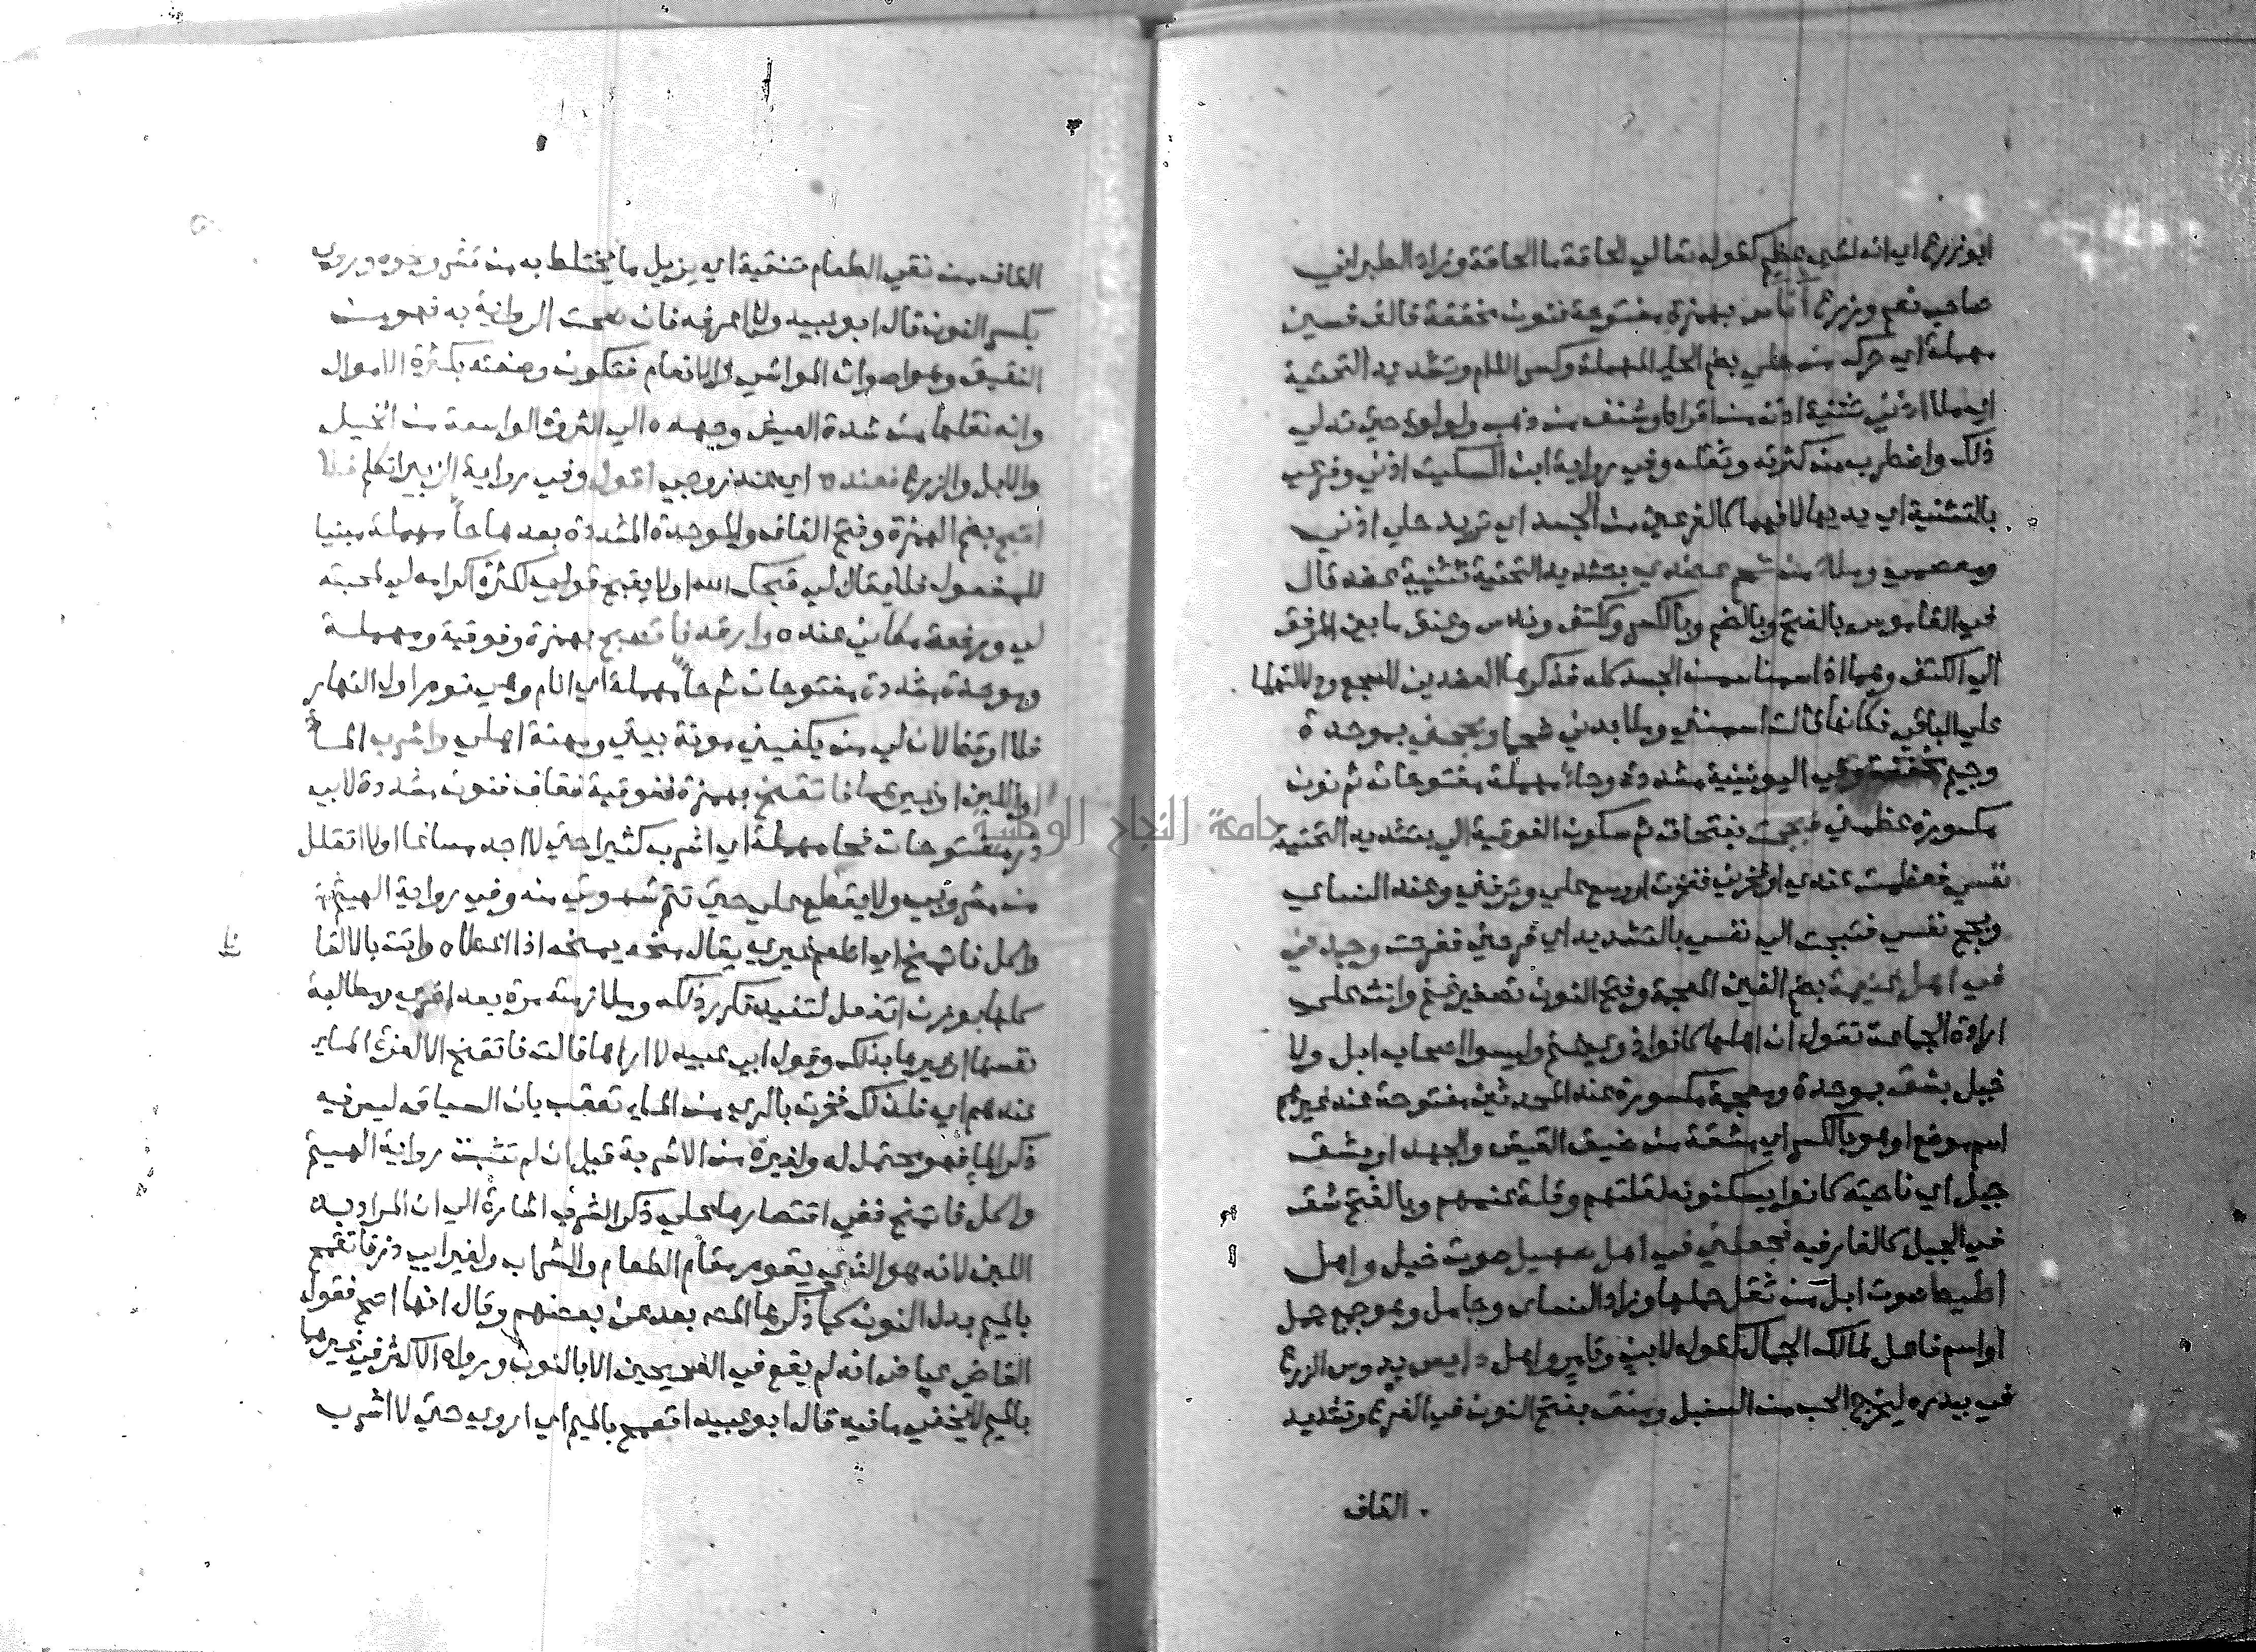 ابو زرع اي انه لشي عظيم كقوله تعالي الحاقة ما الحاقة وزاد الطبراني
صاحب نعم وزرع اناس بهمزة مفتوحة فنون مخففة فالف فسين
مهملة اي حرك من حلي بضم الحاء المهملة وكسر اللام وتشديد التحتية
اي ملا اذني تثنية اذن من اقراط وشنف من ذهب ولولو حتي تدلي
ذلك واضطرب من كثرته وثقله وفي رواية ابن السكيت اذني وفرعي
بالتثنية اي يديها لانهما كالفرعين من الجسد اي تريد حلي اذني
ومعصمي وملا من شحم عضدي بتشديد التحتية تثنية عضد قال
في القاموس بالفتح وبالضم وبالكسر وككتف وندس وعنق ما بين المرفق
الي الكتف وهما اذا سمنا سمن الجسد كله فذكرها العضدين للسجع ودلالتهما
علي الباقي فكانها قالت اسمنني وملا بدني شحما وبجحني بموحدة
وجيم مخففة وفي اليونينية مشددة وحاء مهملة مفتوحات ثم نون
مكسورة عظمني فبجحت بفتحات ثم سكون الفوقية الي بتشديد التحتية
نفسي فعظمت عندي او فخرني ففخرت او وسع علي وترفني وعند النساي
وبجح نفسي فتبجحت الي نفسي بالتشديد اي فرحني ففرحت وجدني
في اهل غنيمة بضم الغين المعجمة وفتح النون تصغير غنم وانث علي
ارادة الجماعة تقول ان اهلها كانوا ذوي غنم وليسوا اصحاب ابل ولا
خيل بشق بموحدة ومعجمة مكسورة عند المحدثين مفتوحة عند غيرهم
اسم موضع او هو بالكسر اي مشقة من ضيق العيش والجهد او بشق
جبل اي ناحيته كانوا يسكنونه لقلتهم وقلة غنمهم وبالفتح شق
في الجبل كالغار فيه فجعلني في اهل صهيل صوت خيل واهل
اطيط صوت ابل من ثقل حملها وزاد النساي وجامل وهو جمع جمل
او اسم فاعل لمالك الجمال كقوله لابن وتامر واهل دايس يدوس الزرع
في بيدره ليخرج الحب من السنبل ومنق بفتح النون في الفرع وتشديد
القاف
القاف من نقي الطعام تنقية اي يزيل ما يختلط به من قشر ونحوه وروي
بكسر النون قال ابو عبيد ولا اعرفه فان صحت الرواية به فهو من
النقيق وهو اصوات المواشي والانعام فتكون وصفته بكثرة الاموال
وانه نقلها من شدة العيش وجهده الي الثروة الواسعة من الخيل
والابل والزرع فعنده اي عند زوجي اقول وفي رواية الزبير اتكلم فلا
اقبح بضم الهمزة وفتح القاف والموحدة المشددة بعدها حا مهملة مبنيا
للمفعول فلا يقال لي قبحك الله او لا يقبح قولي لكثرة اكرامه لي لمحبته
لي ورفعة مكاني عنده وارقد فاتصبح بهمزة وفوقية ومهملة
وموحدة مشددة مفتوحات ثم حا مهملة اي انام وهي نوم اول النهار
فلا اوقظ لان لي من يكفيني مونة بيتي ومهنة اهلي واشرب الماء
او اللبن او غيرهما فاتقنح بهمزة ففوقية فقاف فنون مشددة لابي
ذر مفتوحات فحا مهملة اي اشرب كثيرا حتي لا اجد مساغا او لا اتقلل
من مشروبي ولا يقطع علي حتي تتم شهوتي منه وفي رواية الهيثم
واكل فاتمنح اي اطعم غيري يقال منحه يمنحه اذا اعطاه واتت بالالفاظ
كلها بوزن اتفعل لتفيد تكرر ذلك وملازمته مرة بعد اخري ومطالبة
نفسها او غيرها بذلك وقول ابي عبيد لا اراها قالت فاتقنح الا لعزة الماء
عندهم اي فلذلك فخرت بالري من الماء تعقب بان السياق ليس فيه
ذكر الماء فهو يحتمل له ولغيره من الاشربة قيل ان لم تثبت رواية الهيثم
واكل فاتمنح ففي اقتصارها علي ذكر الشرب اشارة الي ان المراد به
اللبن لانه هو الذي يقوم مقام الطعام والشراب ولغير ابي ذر فاتقمح
بالميم بدل النون كما ذكرها المص بعد عن بعضهم وقال انها اصح فقول
القاضي عياض انه لم يقع في الصحيحين الا بالنون ورواه الاكثر في غيرهما
بالميم لا يخفي ما فيه قال ابو عبيد اتقمح بالميم اي اروي حتي لا اشرب